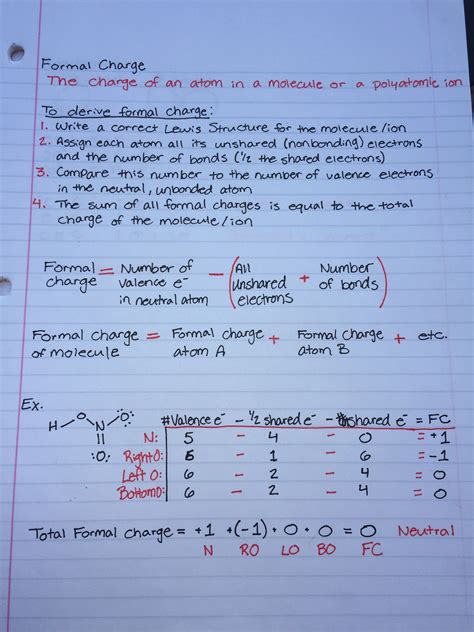 Formal Charge
The charge of an atom in a molecule or a polyatomic ion
To derive formal charge:
1. Write a correct Lewis Structure for the molecule/ion
2. Assign each atom all its unshared (nonbonding) electrons
and the number of bonds (1/2 the shared electrons)
3. Compare this number to the number of valence electrons
in the neutral, unbonded atom
4. The sum of all formal charges is equal to the total
charge of the molecule/ion
Formal charge = Number of valence e⁻ in neutral atom − (All unshared electrons + Number of bonds)
Formal charge of molecule = Formal charge atom A + Formal charge atom B + etc.
Ex.
H O N O
O
#Valence e⁻ − 1/2 shared e⁻ − unshared e⁻ = FC
N: 5 − 4 − 0 = +1
Right O: 6 − 1 − 6 = −1
Left O: 6 − 2 − 4 = 0
Bottom O: 6 − 2 − 4 = 0
Total Formal charge = +1 +(−1) + 0 + 0 = 0 Neutral
N RO LO BO FC